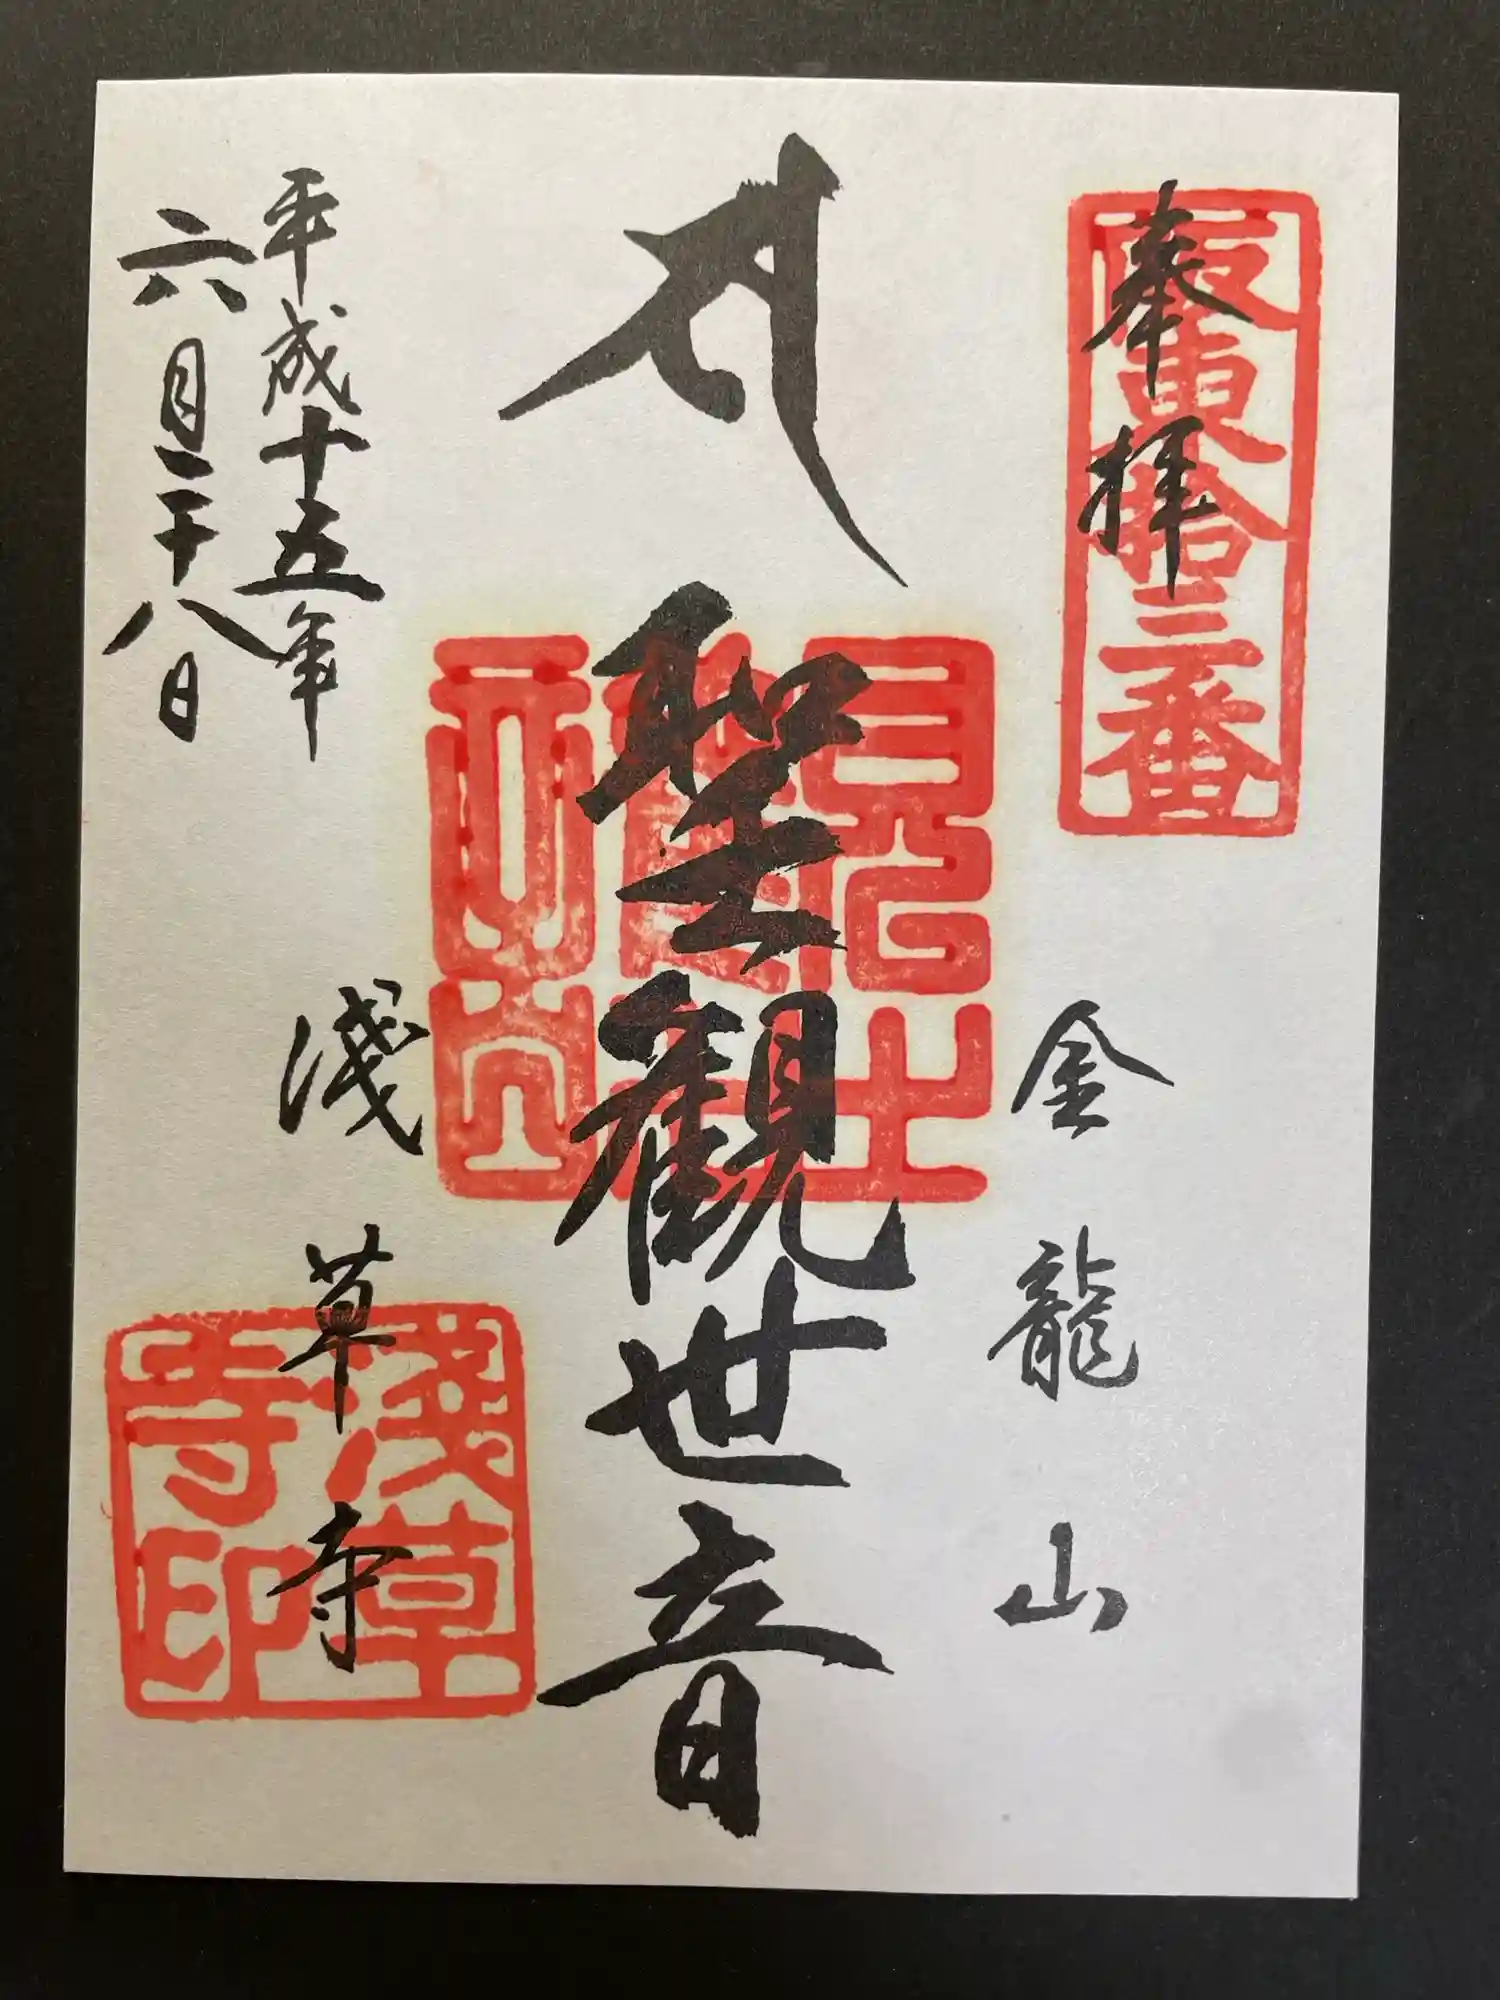 奉拝
坂東拾三番
金龍山
聖観世音
平成十五年
六月二十八日
淺草寺
淺草
寺印